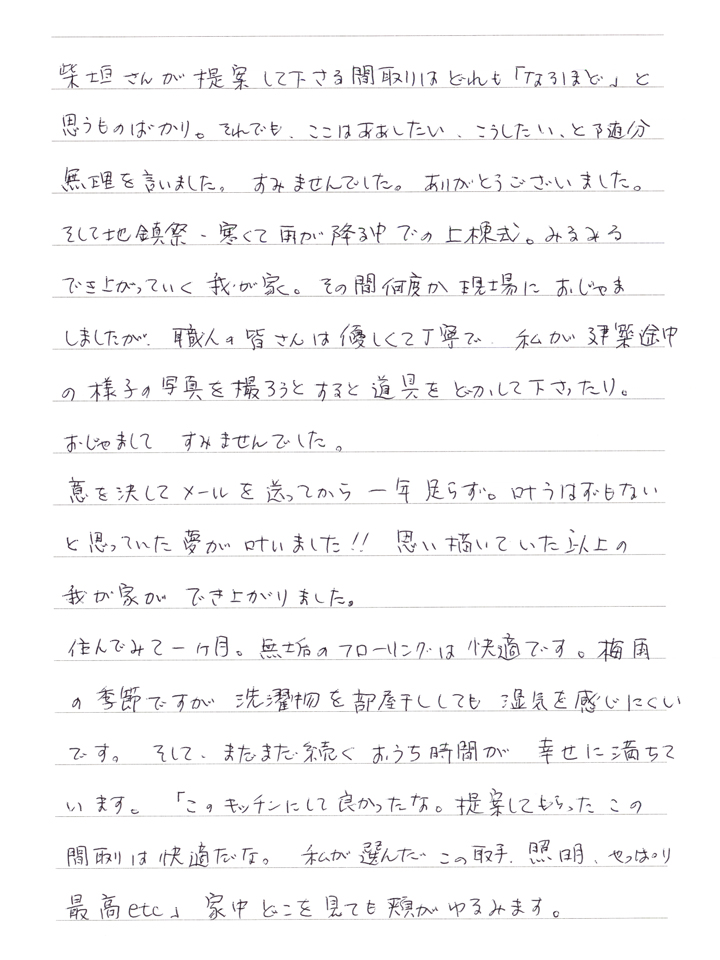 柴垣さんが提案して下さる間取りはどれも「なるほど」と
思うものばかり。それでも、ここはああしたい、こうしたい、と随分
無理を言いました。すみませんでした。ありがとうございました。
そして地鎮祭、寒くて雨が降る中での上棟式。みるみる
でき上がっていく我が家。その間何度か現場におじゃま
しましたが、職人の皆さんは優しくて丁寧で、私が建築途中
の様子の写真を撮ろうとすると道具をどかして下さったり。
おじゃまして すみませんでした。
意を決してメールを送ってから一年足らず。叶うはずもない
と思っていた夢が叶いました!! 思い描いていた以上の
我が家ができ上がりました。
住んでみて一ヶ月。無垢のフローリングは快適です。梅雨
の季節ですが洗濯物を部屋干ししても湿気を感じにくい
です。そして、まだまだ続くおうち時間が幸せに満ちて
います。「このキッチンにして良かったな。提案してもらったこの
間取りは快適だな。私が選んだこの取手、照明、やっぱり
最高etc」家中どこを見ても頬がゆるみます。